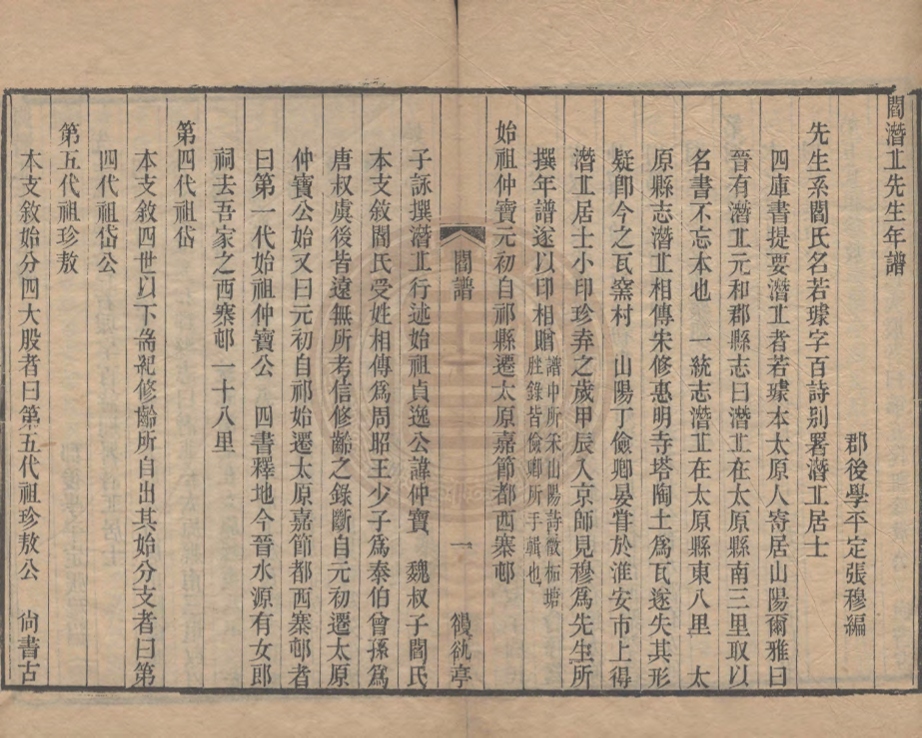 閻潛丘先生年譜
郡後學平定張穆編
先生系閻氏名若璩字百詩别署潛丘居士
四庫書提要潛丘者若璩本太原人寄居山陽爾雅曰
晉有潛丘元和郡縣志曰潛丘在太原縣南三里取以
名書不忘本也 一統志潛丘在太原縣東八里 太
原縣志潛丘相傳宋修惠明寺塔陶土爲瓦遂失其形
疑卽今之瓦窯村 山陽丁儉卿晏嘗於淮安市上得
潛丘居士小印珍弆之歲甲辰入京師見穆爲先生所
撰年譜遂以印相贈
譜中所采山陽詩徵柘塘
脞錄皆儉卿所手輯也
始祖仲寶元初自祁縣遷太原嘉節都西寨邨
閻譜 一 䈰䤋亭
子詠撰潛丘行述始祖貞逸公諱仲寶 魏叔子閻氏
本支敘閻氏受姓相傳爲周昭王少子爲泰伯曾孫爲
唐叔虞後皆遠無所考信修齡之錄斷自元初遷太原
仲寶公始又曰元初自祁始遷太原嘉節都西寨邨者
曰第一代始祖仲寶公 四書釋地今晉水源有女郎
祠去吾家之西寨邨一十八里
第四代祖岱
本支敘四世以下耑紀修齡所自出其始分支者曰第
四代祖岱公
第五代祖珍敖
本支敘始分四大股者曰第五代祖珍敖公 尙書古